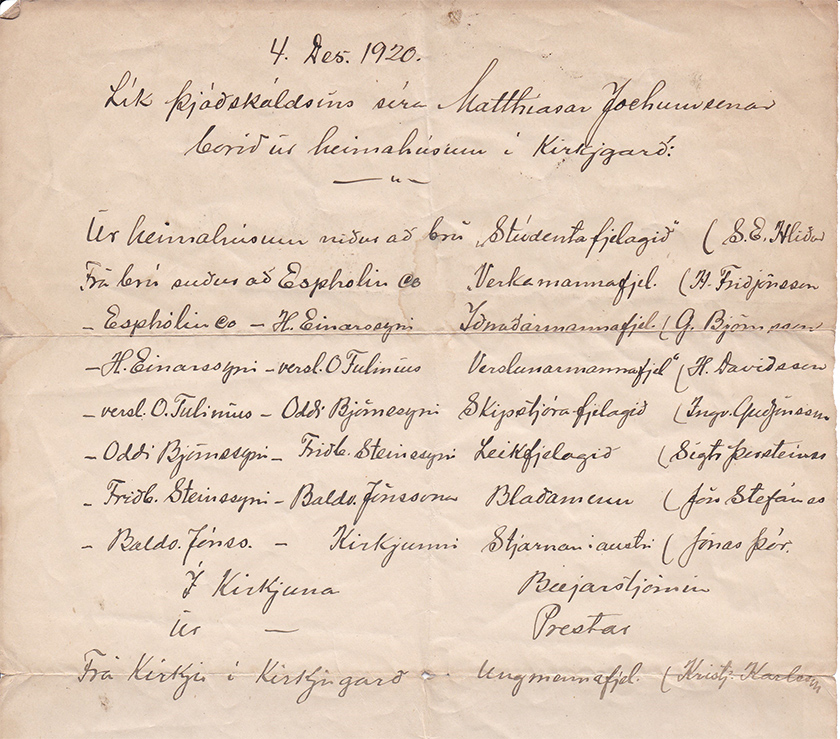 4. Des. 1920.
Lík þjóðskáldsins séra Matthíasar Jochumssonar
borið úr heimahúsum í Kirkjgarð:
— " —
Úr heimahúsum niður að brú „Stúdentafjelagið" ( S.E. Hlíðar
Frá brú suður að Espholin Co Verkamannafjel. (H. Friðjónsson
- Espholin Co - H. Einarssyni Iðnaðarmannafjel. ( G. Björnsson
- H. Einarssyni - versl. O Tulinius Verslunarmannafjel" ( H. Davíðsson
- versl. O. Tulinius - Oddi Björnssyni Skipstjórafjelagið (Ingv. Guðjónsson
- Oddi Björnssyni - Friðb. Steinssyni Leikfjelagið (Sigtr Þorsteinss
- Friðb. Steinssyni - Baldv. Jónssonar Blaðamenn ( Jón Stefánss
- Baldv. Jónss. - Kirkjunni Stjarnan í austri ( Jónas Þór.
Í Kirkjuna Bæjarstjórnin
Úr — Prestar
Frá Kirkju í Kirkjugarð Ungmennafjel. ( Kristj. Karlsson